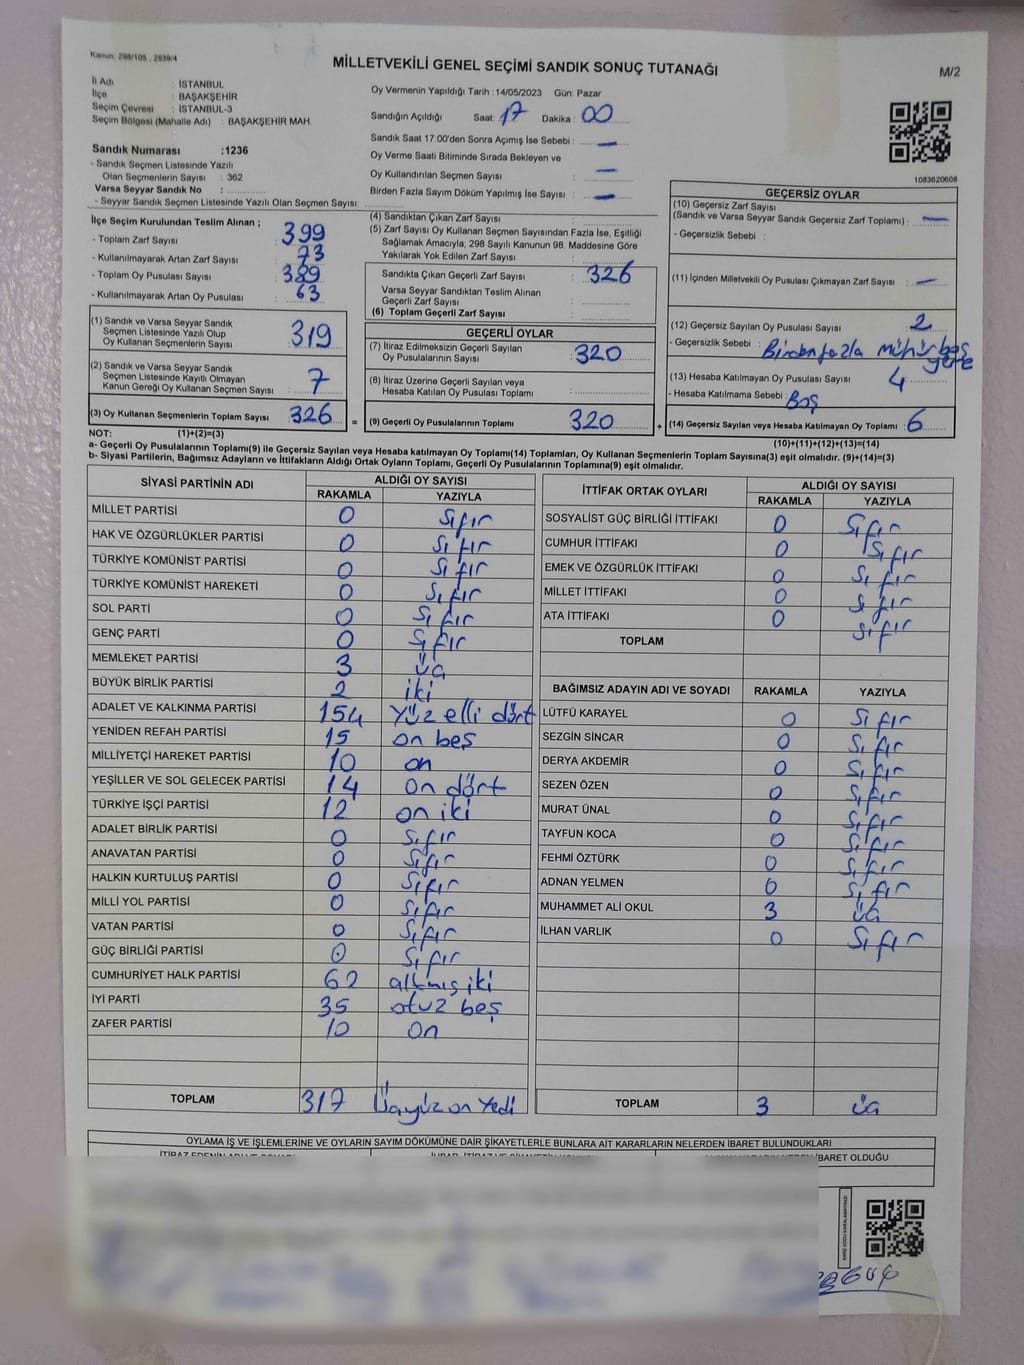 Kanun: 298/105, 2839/4
MİLLETVEKİLİ GENEL SEÇİMİ SANDIK SONUÇ TUTANAĞI
M/2
İl Adı : İSTANBUL
İlçe : BAŞAKŞEHİR
Seçim Çevresi : İSTANBUL-3
Seçim Bölgesi (Mahalle Adı) : BAŞAKŞEHİR MAH.
Sandık Numarası :1236
- Sandık Seçmen Listesinde Yazılı
Olan Seçmenlerin Sayısı : 362
Varsa Seyyar Sandık No :
- Seyyar Sandık Seçmen Listesinde Yazılı Olan Seçmen Sayısı:
Oy Vermenin Yapıldığı Tarih :14/05/2023 Gün: Pazar
Sandığın Açıldığı Saat: 17 Dakika : 00
Sandık Saat 17.00'den Sonra Açımış İse Sebebi : —
Oy Verme Saati Bitiminde Sırada Bekleyen ve
Oy Kullandırılan Seçmen Sayısı : —
Birden Fazla Sayım Döküm Yapılmış İse Sayısı : —
1083620608
İlçe Seçim Kurulundan Teslim Alınan ;
- Toplam Zarf Sayısı : 399
- Kullanılmayarak Artan Zarf Sayısı : 73
- Toplam Oy Pusulası Sayısı : 389
- Kullanılmayarak Artan Oy Pusulası : 63
(1) Sandık ve Varsa Seyyar Sandık
Seçmen Listesinde Yazılı Olup
Oy Kullanan Seçmenlerin Sayısı : 319
(2) Sandık ve Varsa Seyyar Sandık
Seçmen Listesinde Kayıtlı Olmayan
Kanun Gereği Oy Kullanan Seçmen Sayısı : 7
(3) Oy Kullanan Seçmenlerin Toplam Sayısı : 326 =
(4) Sandıktan Çıkan Zarf Sayısı :
(5) Zarf Sayısı Oy Kullanan Seçmen Sayısından Fazla İse, Eşitliği
Sağlamak Amacıyla; 298 Sayılı Kanunun 98. Maddesine Göre
Yakılarak Yok Edilen Zarf Sayısı :
Sandıkta Çıkan Geçerli Zarf Sayısı : 326
Varsa Seyyar Sandıktan Teslim Alınan
Geçerli Zarf Sayısı :
(6) Toplam Geçerli Zarf Sayısı :
GEÇERLİ OYLAR
(7) İtiraz Edilmeksizin Geçerli Sayılan
Oy Pusulalarının Sayısı : 320
(8) İtiraz Üzerine Geçerli Sayılan veya
Hesaba Katılan Oy Pusulaları Toplamı :
(9) Geçerli Oy Pusulalarının Toplamı : 320 +
GEÇERSİZ OYLAR
(10) Geçersiz Zarf Sayısı
(Sandık ve Varsa Seyyar Sandık Geçersiz Zarf Toplamı) : —
- Geçersizlik Sebebi :
(11) İçinden Milletvekili Oy Pusulası Çıkmayan Zarf Sayısı : —
(12) Geçersiz Sayılan Oy Pusulası Sayısı : 2
- Geçersizlik Sebebi : Birden fazla mühür boş yere
(13) Hesaba Katılmayan Oy Pusulası Sayısı : 4
- Hesaba Katılmama Sebebi : Boş
(14) Geçersiz Sayılan veya Hesaba Katılmayan Oy Toplamı : 6
NOT: (1)+(2)=(3) (10)+(11)+(12)+(13)=(14)
a- Geçerli Oy Pusulalarının Toplamı(9) ile Geçersiz Sayılan veya Hesaba Katılmayan Oy Toplamı(14) Toplamları, Oy Kullanan Seçmenlerin Toplam Sayısına(3) eşit olmalıdır. (9)+(14)=(3)
b- Siyasi Partilerin, Bağımsız Adayların ve İttifakların Aldığı Ortak Oyların Toplamı, Geçerli Oy Pusulalarının Toplamına(9) eşit olmalıdır.
SİYASİ PARTİNİN ADI ALDIĞI OY SAYISI
RAKAMLA YAZIYLA
MİLLET PARTİSİ 0 Sıfır
HAK VE ÖZGÜRLÜKLER PARTİSİ 0 Sıfır
TÜRKİYE KOMÜNİST PARTİSİ 0 Sıfır
TÜRKİYE KOMÜNİST HAREKETİ 0 Sıfır
SOL PARTİ 0 Sıfır
GENÇ PARTİ 0 Sıfır
MEMLEKET PARTİSİ 3 üç
BÜYÜK BİRLİK PARTİSİ 2 iki
ADALET VE KALKINMA PARTİSİ 154 Yüz elli dört
YENİDEN REFAH PARTİSİ 15 on beş
MİLLİYETÇİ HAREKET PARTİSİ 10 on
YEŞİLLER VE SOL GELECEK PARTİSİ 14 on dört
TÜRKİYE İŞÇİ PARTİSİ 12 on iki
ADALET BİRLİK PARTİSİ 0 Sıfır
ANAVATAN PARTİSİ 0 Sıfır
HALKIN KURTULUŞ PARTİSİ 0 Sıfır
MİLLİ YOL PARTİSİ 0 Sıfır
VATAN PARTİSİ 0 Sıfır
GÜÇ BİRLİĞİ PARTİSİ 0 Sıfır
CUMHURİYET HALK PARTİSİ 62 altmış iki
İYİ PARTİ 35 otuz beş
ZAFER PARTİSİ 10 on
TOPLAM 317 Üçyüz on yedi
İTTİFAK ORTAK OYLARI ALDIĞI OY SAYISI
RAKAMLA YAZIYLA
SOSYALİST GÜÇ BİRLİĞİ İTTİFAKI 0 Sıfır
CUMHUR İTTİFAKI 0 Sıfır
EMEK VE ÖZGÜRLÜK İTTİFAKI 0 Sıfır
MİLLET İTTİFAKI 0 Sıfır
ATA İTTİFAKI 0 Sıfır
TOPLAM
BAĞIMSIZ ADAYIN ADI VE SOYADI RAKAMLA YAZIYLA
LÜTFÜ KARAYEL 0 Sıfır
SEZGİN SİNCAR 0 Sıfır
DERYA AKDEMİR 0 Sıfır
SEZEN ÖZEN 0 Sıfır
MURAT ÜNAL 0 Sıfır
TAYFUN KOCA 0 Sıfır
FEHMİ ÖZTÜRK 0 Sıfır
ADNAN YELMEN 0 Sıfır
MUHAMMET ALİ OKUL 3 üç
İLHAN VARLIK 0 Sıfır
TOPLAM 3 üç
OYLAMA İŞ VE İŞLEMLERİNE VE OYLARIN SAYIM DÖKÜMÜNE DAİR ŞİKAYETLERLE BUNLARA AİT KARARLARIN NELERDEN İBARET BULUNDUKLARI
İBARET OLDUĞU
KARE KODU KARALAMAYINIZ!